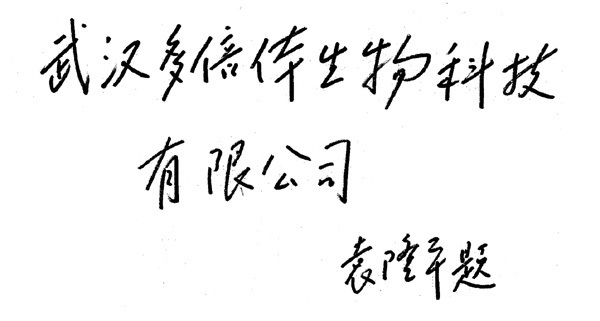 武汉多倍体生物科技
有限公司
袁隆平题